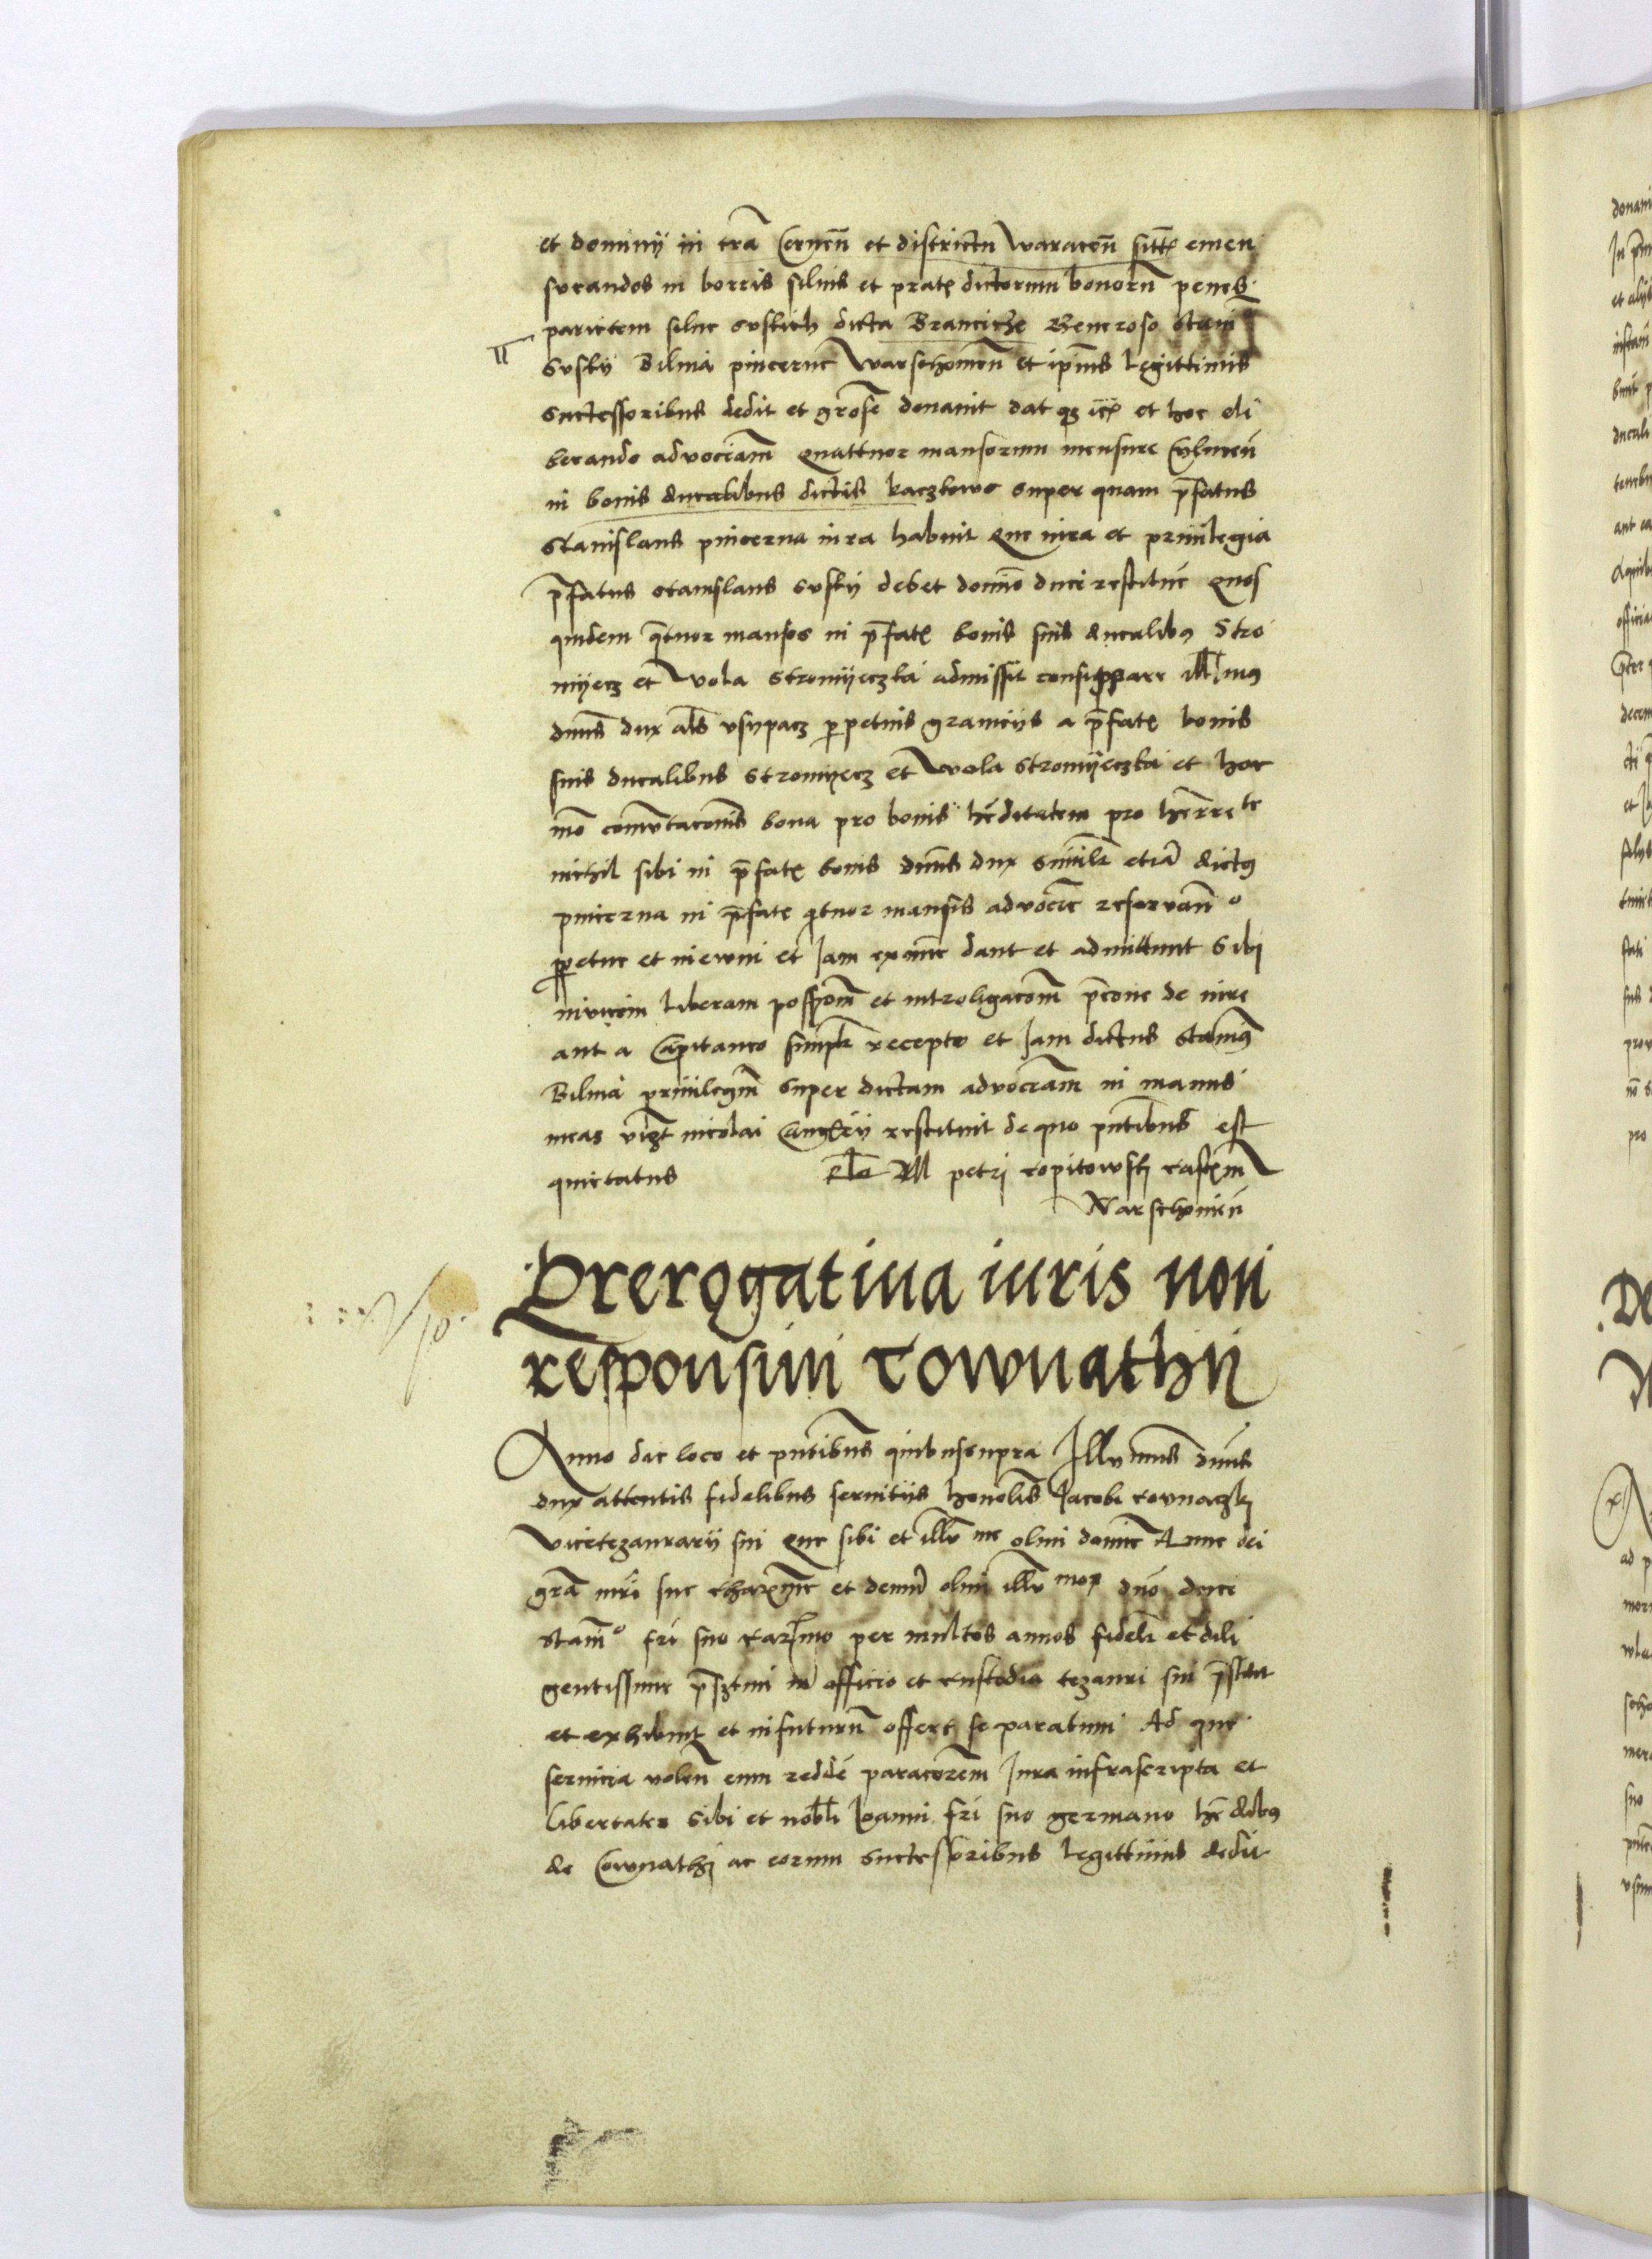 et dominij in trã Cernen̄ et districtu Waracen̄ sitt̄ emen
surandos in borris siluis et prat dictorum bonorū penes
parietem silue suskich dicta Brancicze Generoso Stani
susky Bilina pincerne Warschouien̄ et ip̄ius legittimis
successoribus dedit et grose donauit dat et hoc deli
berando advociam̄ quattuor mansorum mensure Culmen̄
in bonis ducalibus dictis kaczkowo super quam p̄fatus
Stanislaus pincerna iura habuit que iura et priuilegia
p̄fatus stanislaus susky debet domino duci restitue quos
quidem q̄tuor mansos in p̄fat bonis suis ducalib9 Stro
myecz et Wola stromyeczka admissit consignare ill̄mus
dn̄us dux als vsypacz perpetuis graniciis a p̄fat bonis
suis ducalibus stromyecz et Wola stromyeczka et hoc
mō comutacōnis bona pro bonis hēditatem pro hērete
nichil sibi in p̄fat bonis dn̄us dux similr etiā dictus
pincerna in p̄fat q̄tuor mansis advocie reseruan̄
ppetue et in ewm et Jam exnunc dant et admittunt sibi
inuicem liberam possiom̄ et introligacom̄ p̄cone de iure
aut a Capitaneo simplr recepto et Jam dictus Stanis
Bilina priuilegm̄ super dictam advociam̄ in manus
meas vizt nicolai Cancrij restituit de quo pn̄tibus est
quietatus Rlō M petri copitowski castm̄
Warschouien̄
Prerogatiua iuris non
responsiui Cownathij
Anno die loco et pn̄tibus quibus supra Illr̄imus dn̄us
dux attentis fidelibus seruitiis honolis Jacobi cownaczky
Vicetezaurarij sui que sibi et illr̄ me olim domine Anne dei
grã mr̄i sue charme et demū olim illr̄ mo dn̄o duci
Stani° frī suo carmo per multos annos fideli et dili
gentissime in officio et custodia tezauri sui p̄stitit
et exhibuit et in futurū offert se paratum Ad que
seruicia volen̄ eum redde paraciorem Jura infrascripta et
libertates sibi et nobli Joanni frī suo germano hēdibus
de Cownathy ac eorum successoribus legittimis dedit